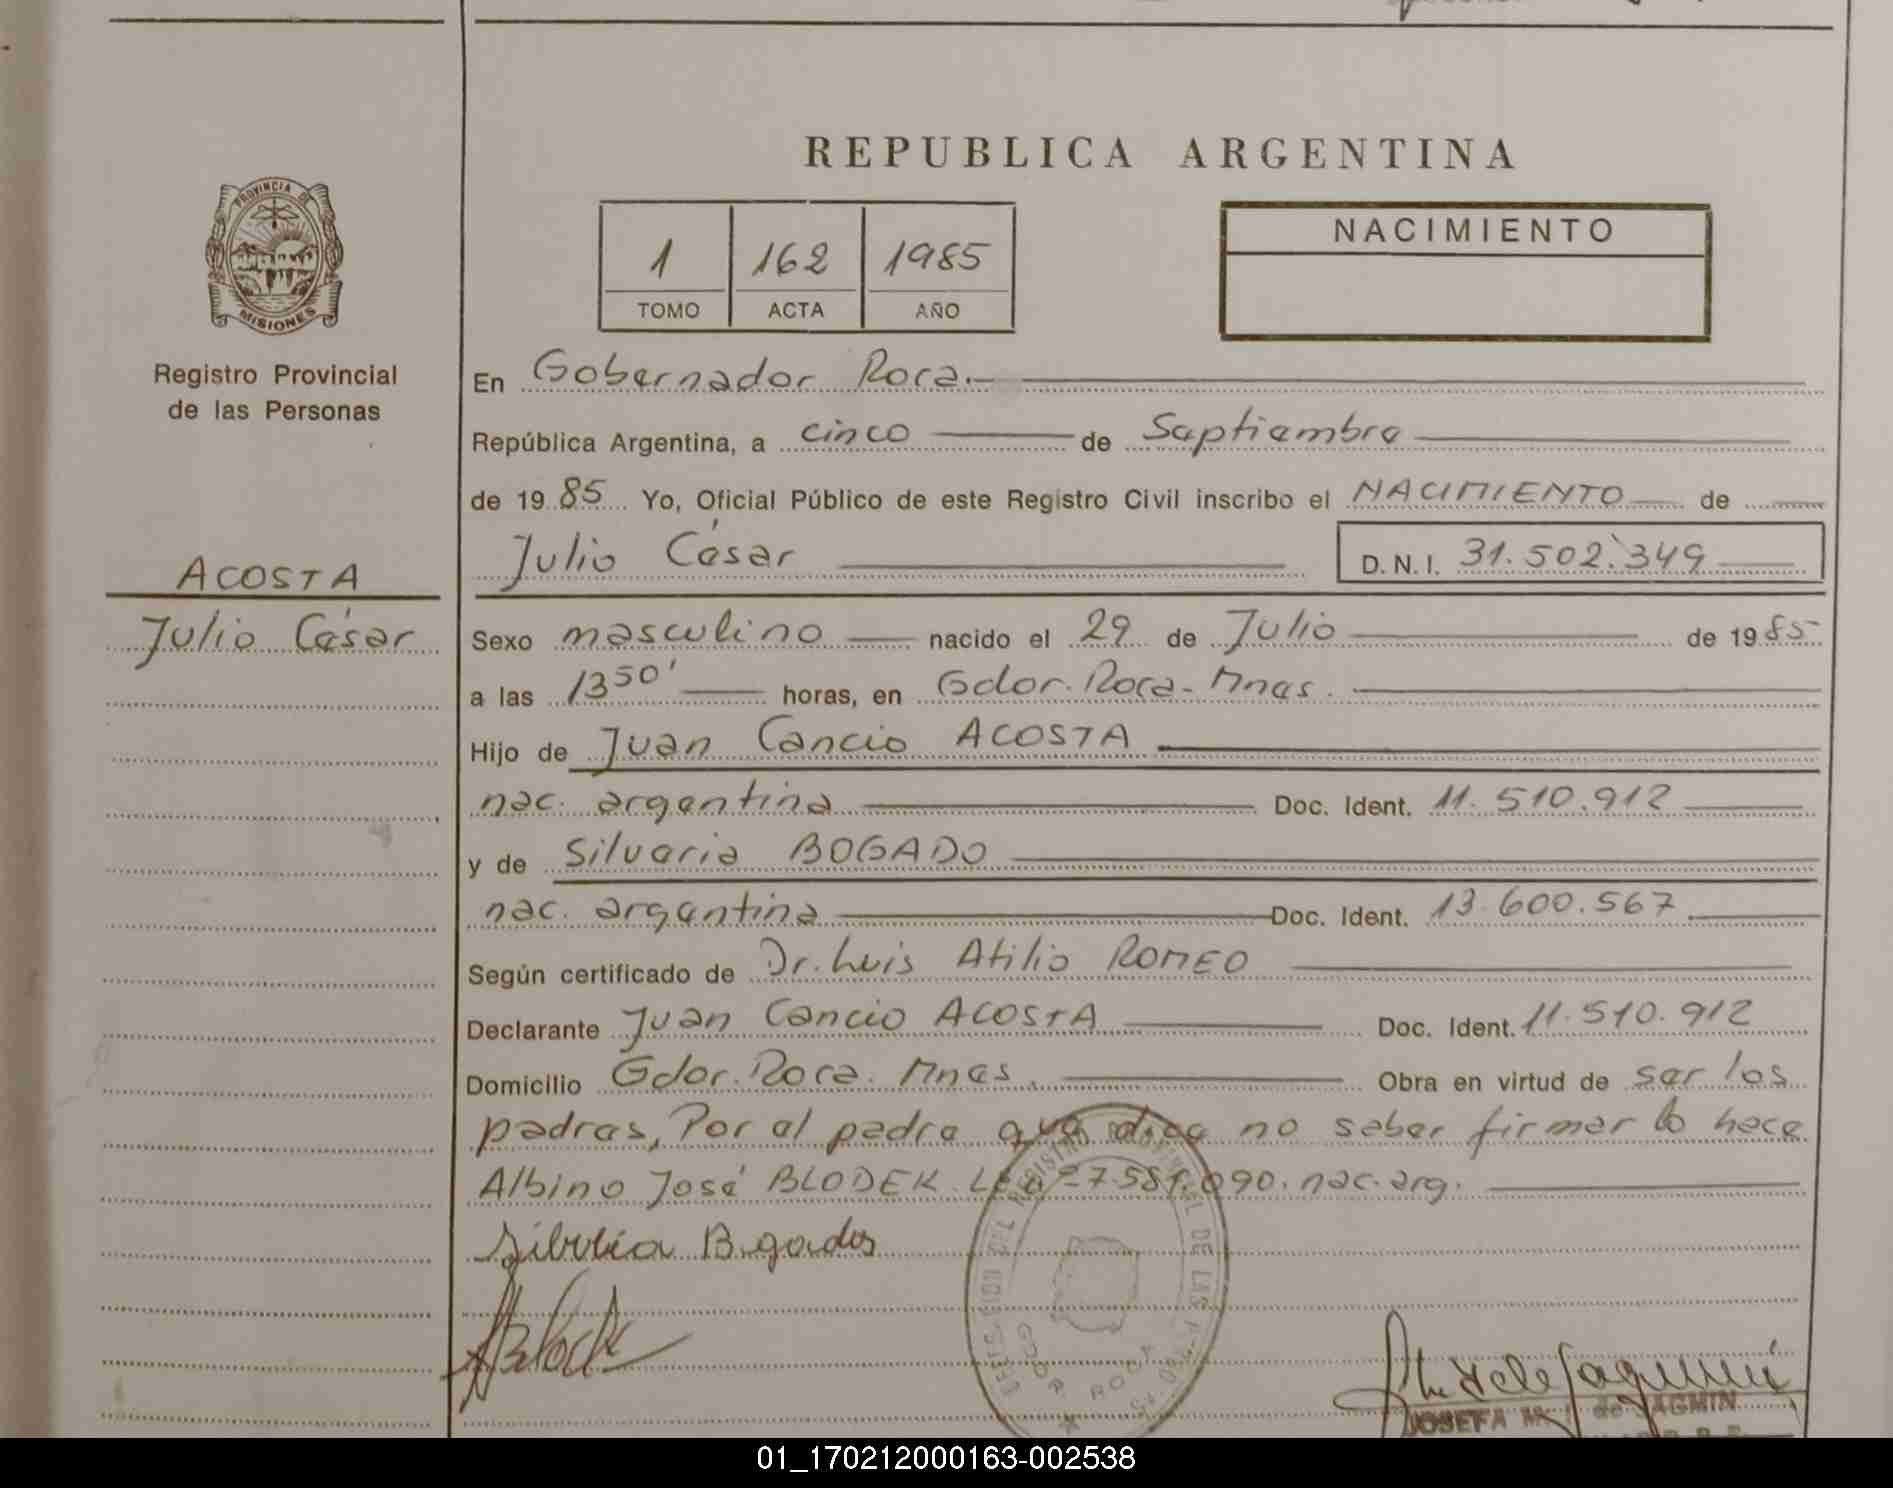 REPUBLICA ARGENTINA
PROVINCIA DE
MISIONES
Registro Provincial
de las Personas
1 162 1985
TOMO ACTA AÑO
NACIMIENTO
En Gobernador Roca.
República Argentina, a cinco de Septiembre
de 1985 Yo, Oficial Público de este Registro Civil inscribo el NACIMIENTO de
Julio César D.N.I. 31.502.349
ACOSTA
Julio César
Sexo masculino nacido el 29 de Julio de 1985
a las 13 50' horas, en Gdor. Roca - Mnes.
Hijo de Juan Cancio ACOSTA
nac. argentina Doc. Ident. 11.510.912
y de Silveria BOGADO
nac. argentina Doc. Ident. 13.600.567
Según certificado de Dr. Luis Atilio ROMEO
Declarante Juan Cancio ACOSTA Doc. Ident. 11.510.912
Domicilio Gdor. Roca. Mnes. Obra en virtud de ser los
padres, Por el padre que dice no saber firmar lo hace
Albino José BLODEK L.E. nº 7.581.090. nac. arg.
REGISTRO PROVINCIAL DE LAS
GDOR. ROCA
JOSEFA de SAGMIN
01_170212000163-002538